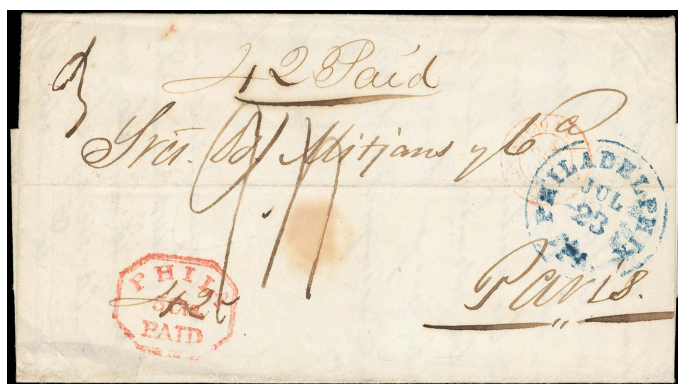 42 Paid
Sres. Bs. Mitjans y Ca
PHILADELPHIA
JUL
23
Pa.
Paris.
PHILA
PAID
42